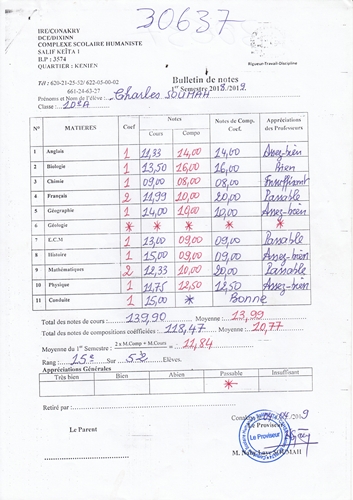 30637
IRE/CONAKRY
DCE/DIXINN
COMPLEXE SCOLAIRE HUMANISTE
SALIF KEÏTA 1
B.P : 3574
QUARTIER : KENIEN
Rigueur-Travail-Discipline
Tél : 620-21-25-52/ 622-03-00-02
661-24-63-27
Bulletin de notes
1er Semestre 2018/2019
Prénoms et Nom de l'élève : Charles SOUMAH
Classe : 10e A
N° MATIERES Coef Notes de Cours Compo Notes de Comp. Coef. Appréciations des Professeurs
1 Anglais 1 11,33 14,00 14,00 Assez-bien
2 Biologie 1 13,50 16,00 16,00 Bien
3 Chimie 1 09,00 08,00 08,00 Insuffisant
4 Français 2 11,99 10,00 20,00 Passable
5 Géographie 1 14,00 10,00 10,00 Assez-bien
6 Géologie * * * * *
7 E.C.M 1 13,00 09,00 09,00 Passable
8 Histoire 1 15,00 09,00 09,00 Assez-bien
9 Mathématiques 2 12,33 10,00 20,00 Passable
10 Physique 1 11,75 12,50 12,50 Assez-bien
11 Conduite 1 15,00 * Bonne
Total des notes de cours : 139,90 Moyenne : 13,99
Total des notes de compositions coéfficiées : 118,47 Moyenne : 10,77
Moyenne du 1er Semestre : 2 x M.Comp + M.Cours = 11,84
Rang : 15e Sur 52 Elèves.
Appréciations Générales
Très bien Bien Abien Passable Insuffisant
*
Retiré par :
Le Parent
Le Proviseur
Le Proviseur